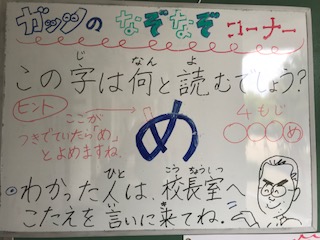 ガッツの なぞなぞ コーナー
この字は何と読むでしょう?
じ なん よ
ヒント
ここが
つきでていたら「め」
とよめますね。
め
4もじ
○○○め
わかった人は、校長室へ
ひと こうちょうしつ
こたえを言いに来てね。
い き